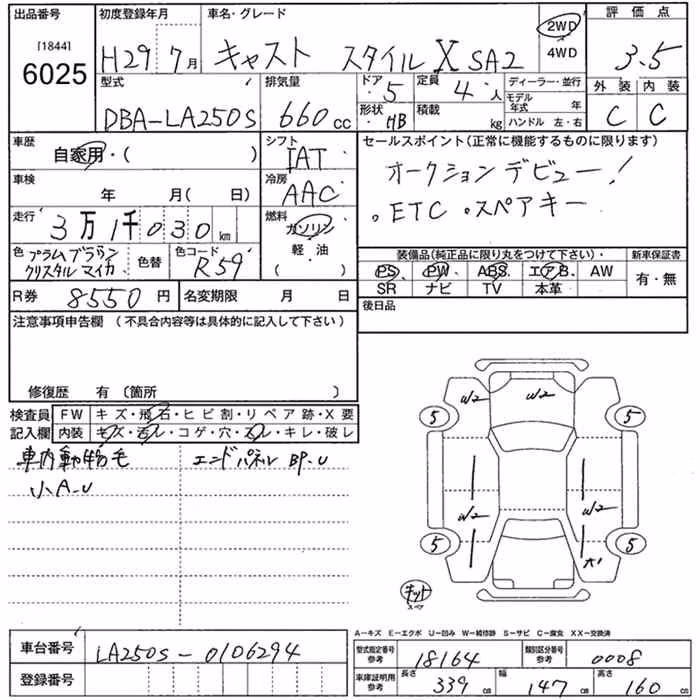 出品番号
[1844]
6025
初度登録年月
H29 7月
車名・グレード
キャスト スタイルX SA2
2WD
4WD
評価点
3.5
型式
DBA-LA250S
排気量
660cc
ドア
5
定員
4人
形状
HB
積載
kg
ディーラー・並行
モデル年式 年
ハンドル 左・右
外装 内装
C C
車歴
自家用・( )
シフト
IAT
車検
年 月( 日)
冷房
AAC
走行
3万1千030km
燃料
ガソリン
軽・油
( )
色
プラムブラウン
クリスタルマイカ
色替
色コード
R59
R券
8550円
名変期限 月 日
セールスポイント(正常に機能するものに限ります)
オークションデビュー!
。ETC 。スペアキー
装備品(純正品に限り丸をつけて下さい)・
新車保証書
PS PW ABS エアB. AW
SR ナビ TV 本革
有・無
後日品
注意事項申告欄(不具合内容等は具体的に記入して下さい)
修復歴 有〔箇所 〕
検査員
記入欄
FW キズ・飛石・ヒビ割・リペア跡・X要
内装 キズ・汚レ・コゲ・穴・スレ・キレ・破レ
車内動物毛 エンドパネルBP-U
小A-U
W2 W2
5 5
W2 W2
5 5
キット
スペア
A-キズ E-エクボ U-凹み W-補修跡 S-サビ C-腐食 XX-交換済
車台番号
LA250S-0106294
登録番号
型式指定番号
参考
18164
類別区分番号
参考
0008
車庫証明用
参考
長さ 339cm
幅 147cm
高さ 160cm